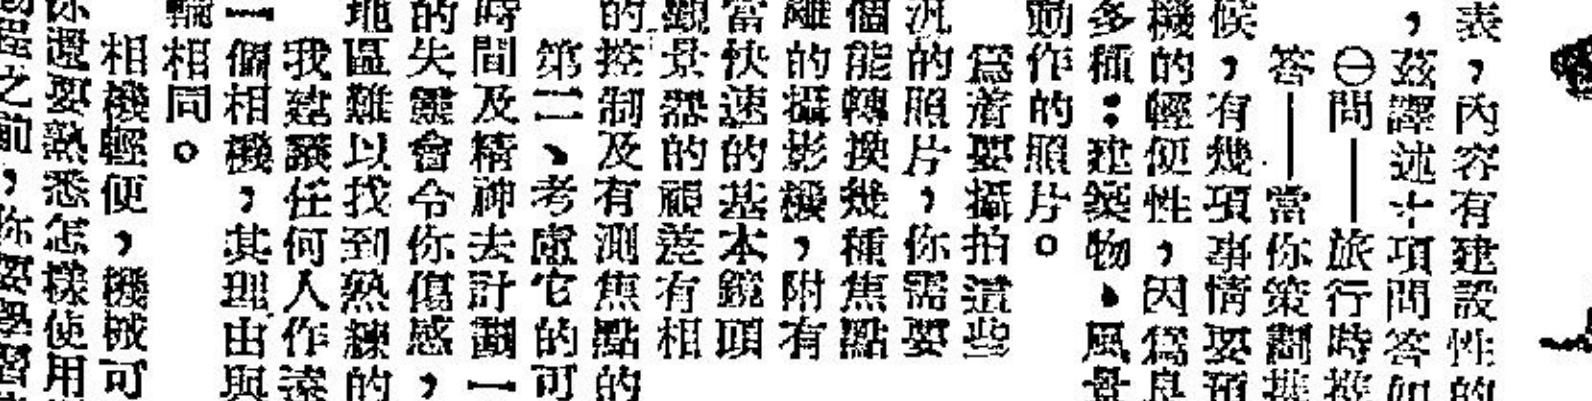 表，內容有建設性的
，茲譯述十項問答如
㊀問——旅行時
答——當你策劃
候，有幾項事情要預
機的輕便性，因爲
多種：建築物、風景
動作的照片。
爲着要攝拍這些
的照片，你需要
個能轉換幾種焦點
離的攝影機，附有
當快速的基本鏡頭
觀景器的視差有相
的控制及有測焦點的
第二、考慮它的可
時間及精神去計劃一
的失靈會令你傷感，
地區難以找到熟練的
我建議任何人作遠
一個相機，其理由與
輪相同。
相機輕便，機械可
你還要熟悉怎樣使用
程之前，你要學習